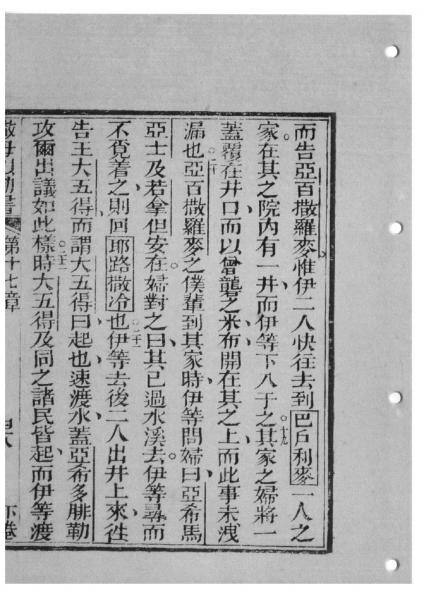 而告亞百撒羅麥惟伊二人快往去到巴戶利麥一人之
家在其之院內有一井而伊等下入于之十九其家之婦將一
蓋覆在井口而以曾礱之米布開在其之上而此事未洩
漏也二十亞百撒羅麥之僕輩到其家時伊等問婦曰亞希馬
亞士及若拿但安在婦對之曰其已過水溪去伊等尋而
不覓着之則回耶路撒冷也二十一伊等去後二人出井上來徃
告王大五得而謂大五得曰起也速渡水蓋亞希多腓勒
攻爾出議如此樣二十二時大五得及同之諸民皆起而伊等渡
第十七章 下卷